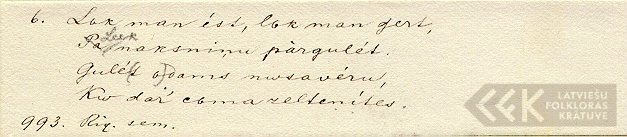 6. Lok man ést, lok man gert,
Pa Leek naksninu pàrgulét.
Gulét ođams nwsavéru,
Kw dař coma zeltenítes.
993. Rig. sem.
LATVIEŠU
FOLKLORAS
KRĀTUVE